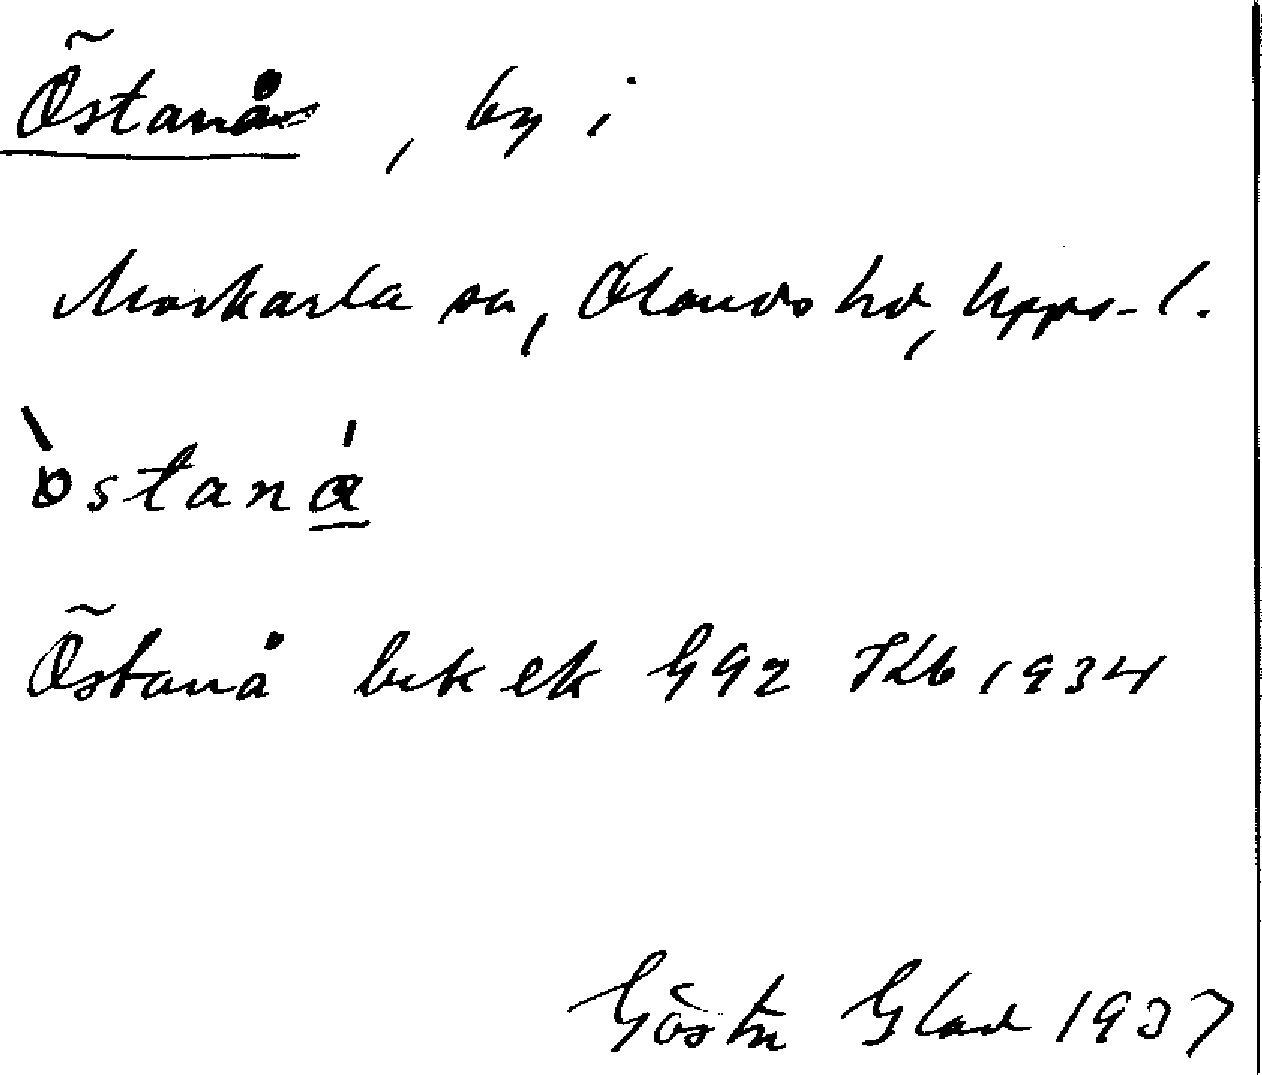 Östanå, by i
Morkarla sn, Olands hd, Upps. l.
òstaná
Östanå bek ek G92 JKb 1934
Gösta Glad 1937